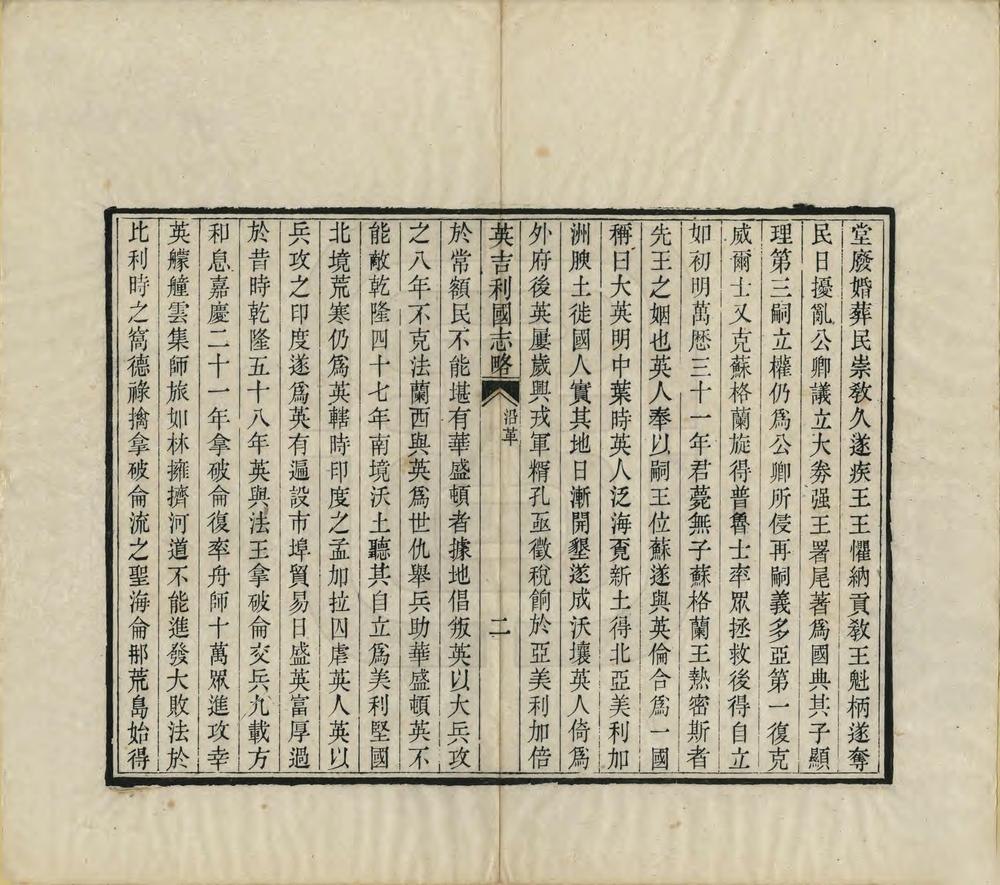 堂廢婚葬民崇敎久遂疾王王懼納貢敎王魁柄遂奪
民日擾亂公卿議立大券强王署尾著爲國典其子顯
理第三嗣立權仍爲公卿所侵再嗣義多亞第一復克
威爾士又克蘇格蘭旋得普魯士率眾拯救後得自立
如初明萬歷三十一年君薨無子蘇格蘭王熱密斯者
先王之姻也英人奉以嗣王位蘇遂與英倫合爲一國
稱曰大英明中葉時英人泛海覓新土得北亞美利加
洲腴土徙國人實其地日漸開墾遂成沃壤英人倚爲
外府後英屢歲興戎軍糈孔亟徵稅餉於亞美利加倍
英吉利國志略 沿革 二
於常額民不能堪有華盛頓者據地倡叛英以大兵攻
之八年不克法蘭西與英爲世仇舉兵助華盛頓英不
能敵乾隆四十七年南境沃土聽其自立爲美利堅國
北境荒寒仍爲英轄時印度之孟加拉囚虐英人英以
兵攻之印度遂爲英有遍設市埠貿易日盛英富厚過
於昔時乾隆五十八年英與法王拿破侖交兵九載方
和息嘉慶二十一年拿破侖復率舟師十萬眾進攻幸
英艨艟雲集師旅如林擁擠河道不能進發大敗法於
比利時之窩德祿擒拿破侖流之聖海侖那荒島始得